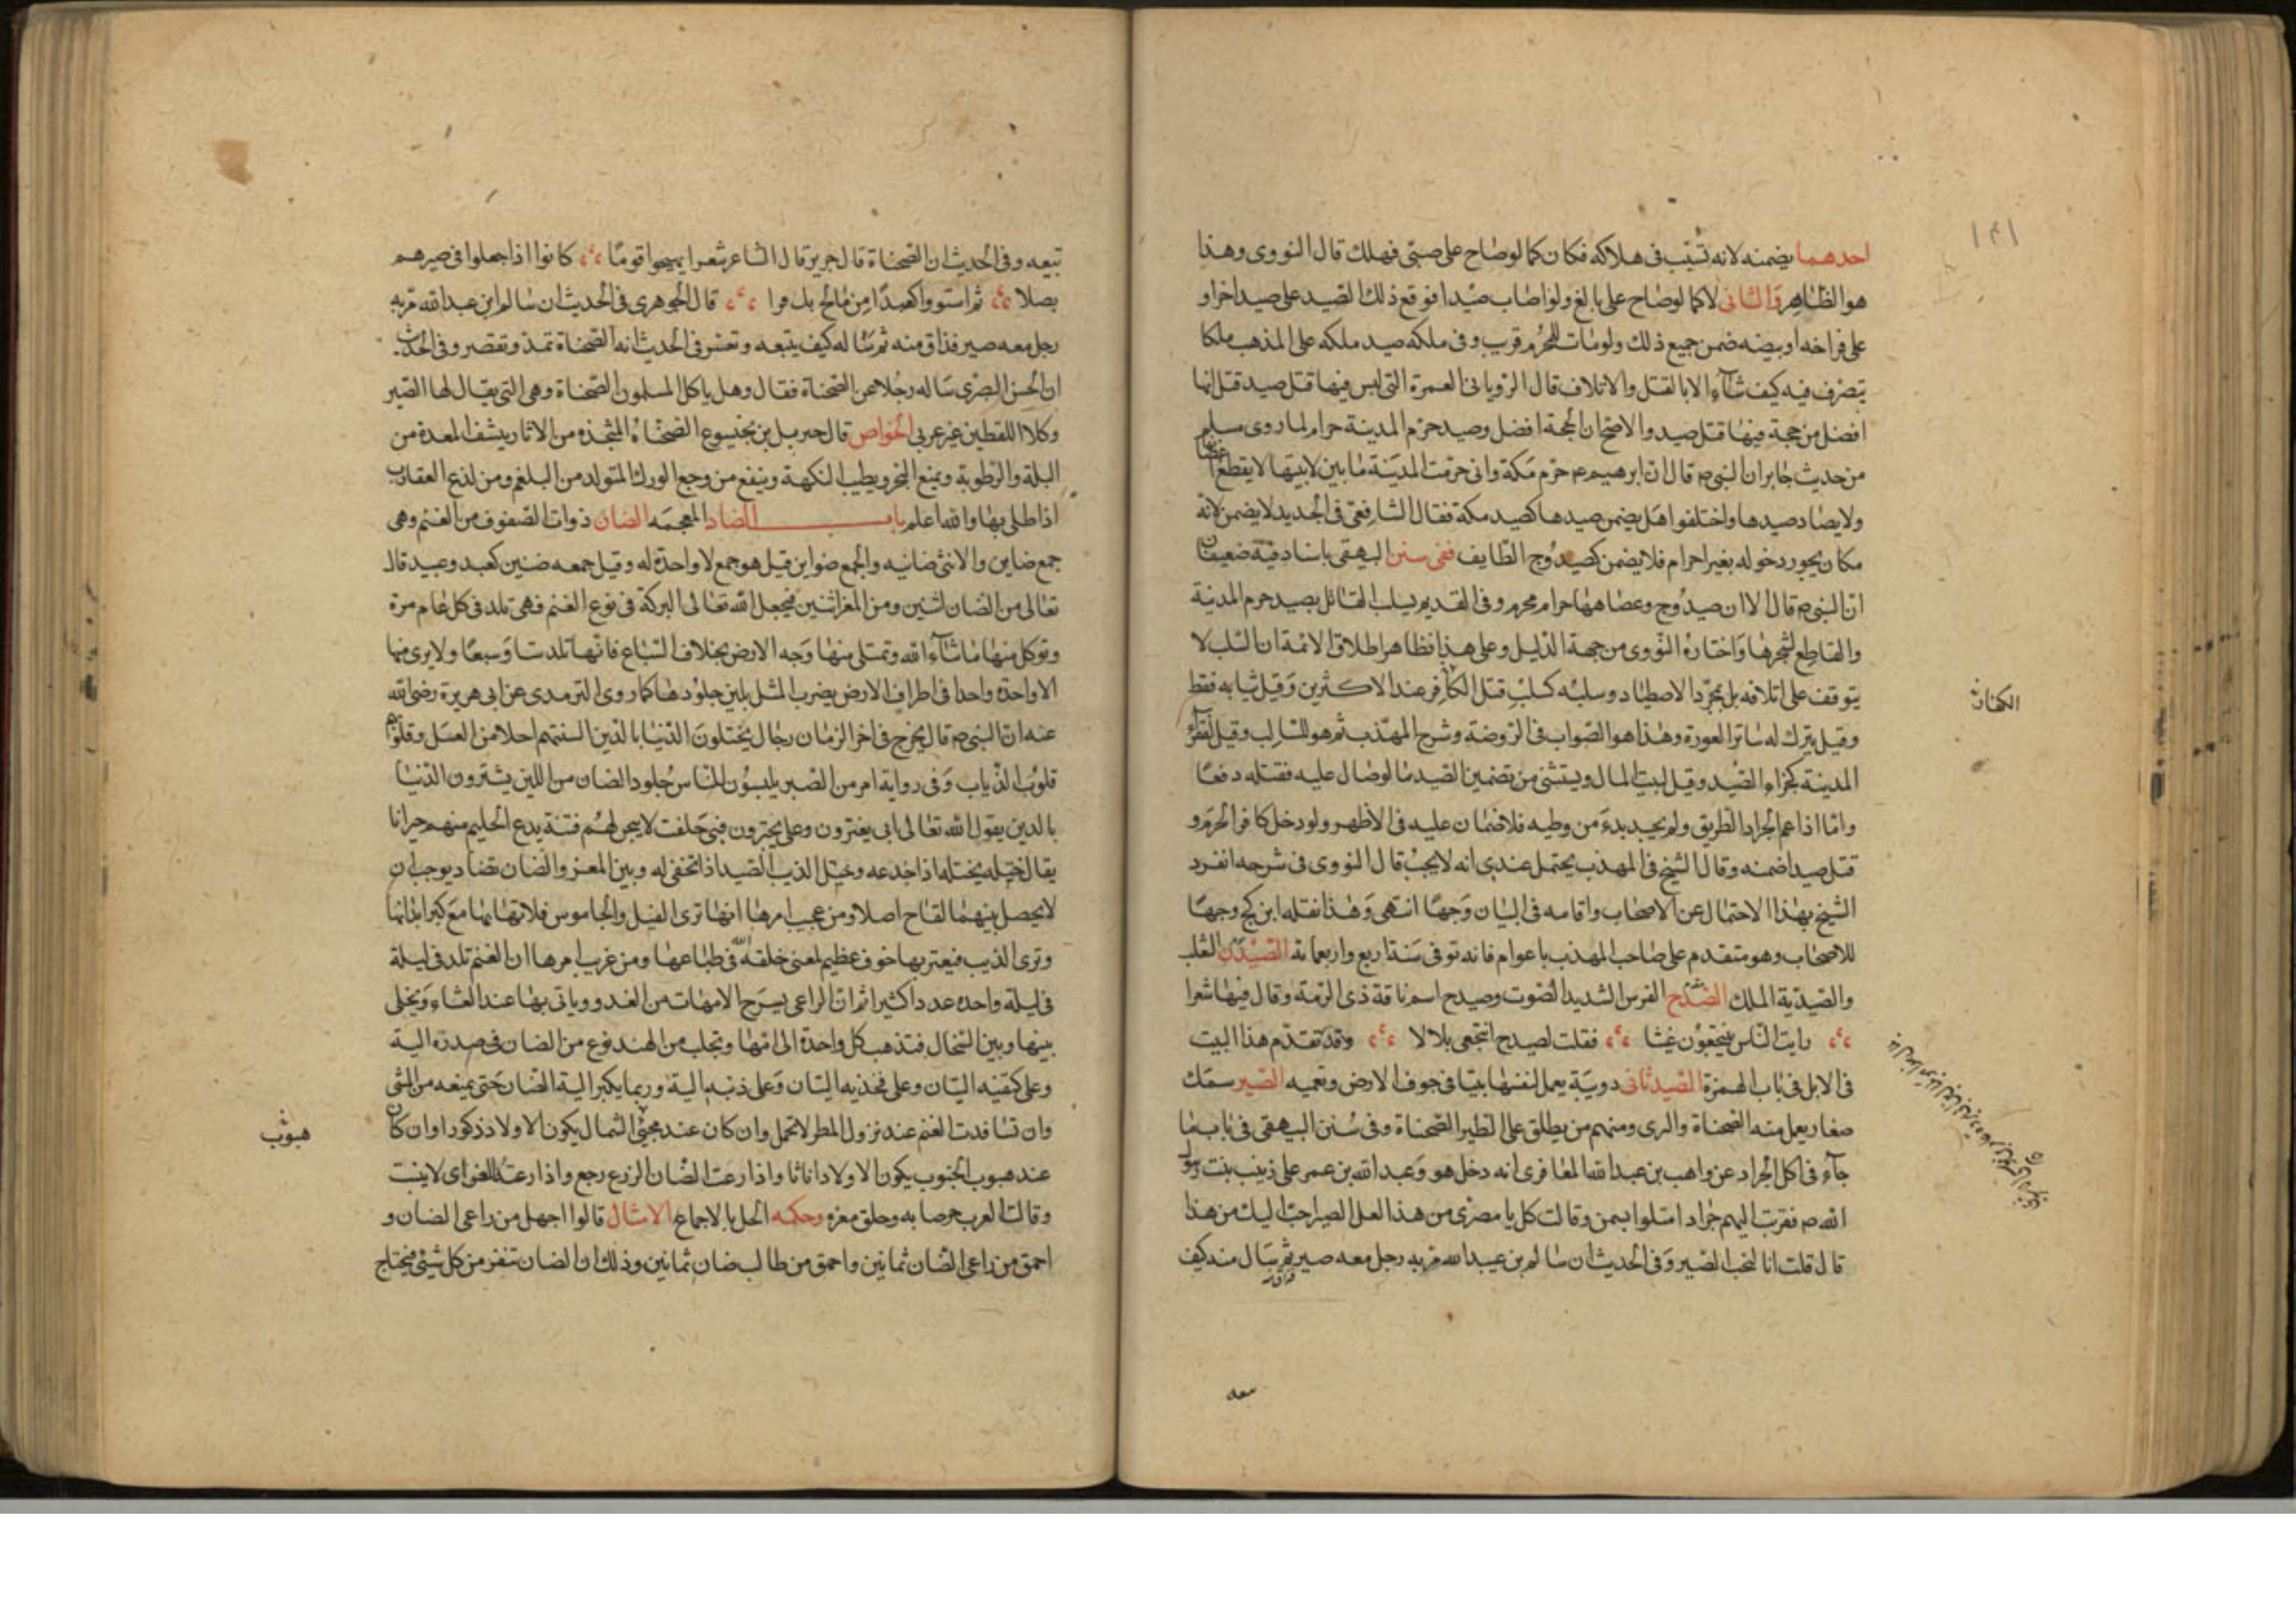 ١٤١
احدهما يضمنه لانه تسبب فى هلاكه فكان كما لوصاح على صبى فهلك قال النووى وهذا
هو الظاهر والثانى لا كما لوصاح على بالغ ولو اصاب صيدا فوقع ذلك الصيد على صيد اخر او
على فراخه او بيضه ضمن جميع ذلك ولومات للمحرم قريب وفى ملكه صيد ملكه على المذهب ملكا
يتصرف فيه كيف شآء الا بالقتل والاتلاف قال الرويانى العمرة التى ليس فيها قتل صيد قتل انها
افضل من حجة فيها قتل صيد والاصح ان الحجة افضل وصيد حرم المدينة حرام لما روى مسلم
من حديث جابر ان النبى م قال ان ابرهيم م حرم مكة وانى حرمت المدينة ما بين لابيتها لا يقطع عضاها
ولا يصاد صيدها واختلفوا هل يضمن صيدها كصيد مكة فقال الشافعى فى الجديد لا يضمن لانه
مكان يجوز دخوله بغير احرام فلا يضمن كصيد وج الطايف ففى سنن البيهقى باسناد فيه ضعيفان
ان النبى م قال الا ان صيد وج وعضاهها حرام محرم وفى القديم يسلب القاتل بصيد حرم المدينة
والقاطع لشجرها واختاره النووى من جهة الدليل وعلى هذا فظاهر اطلاق الائمة ان السلب لا
يتوقف على اتلافه بل بمجرد الاصطياد وسلبه كسلب قتل الكافر عند الاكثرين وقيل ثيابه فقط
وقيل يترك له ساتر العورة وهذا هو الصواب فى الروضة وشرح المهذب ثم هو للسالب وقيل لفقراء
المدينة كجزاء الصيد وقيل لبيت المال ويستثنى من تضمين الصيد ما لوصال عليه فقتله دفعا
واما اذا عم الجراد الطريق ولم يجد بدء من وطيه فلا ضمان عليه فى الاظهر ولو دخل كافر الحرم و
قتل صيدا ضمنه وقال الشيخ فى المهذب يحتمل عندى انه لا يجب قال النووى فى شرحه انفرد
الشيخ بهذا الاحتمال عن الاصحاب واقامه فى البيان وجها انتهى وهذا نقله ابن كج وجها
للاصحاب وهو متقدم على صاحب المهذب باعوام فانه توفى سنة اربع واربعماية الصيدن الثعلب
والصيدية الملك الصدح الفرس الشديد الصوت وصيدح اسم ناقة ذى الرمة وقال فيها شعرا
رايت الناس ينتجعون غيثا فقلت لصيدح انتجعى بلالا وقد تقدم هذا البيت
فى الابل فى باب الهمزة الصيدنانى دويبة يعمل لنفسها بيتا فى جوف الارض وتعميه الصير سمك
صغار يعمل منه الصحناة والرى ومنهم من يطلق على الطير الصحناة وفى سنن البيهقى فى باب ما
جآء فى اكل الجراد عن واهب بن عبد الله المغافرى انه دخل هو وعبد الله بن عمر على زينب بنت رسول
الله م فقربت اليهم جراد امتلوا بسمن وقالت كل يا مصرى من هذا لعل الصير احب اليك من هذا
قال قلت انا لنحب الصير وفى الحديث ان سالم بن عبد الله مر به رجل معه صير ثم سال منه كيف
فذاق
الكفارة
سعه
تبيعه وفى الحديث ان الصحناة قال جرير قال الشاعر شعرا يهجوا قوما كانوا اذا جعلوا فى صيرهم
بصلا ثم استووا كنعدا من مالح قال الجوهرى فى الحديث ان سالم ابن عبد الله مر به
رجل معه صير فذاق منه ثم سا له كيف يتبعه وتفسر فى الحديث انه الصحناة تمد وتقصر وفى الحديث
ان الحسن البصرى ساله رجلا عن الصحناة فقال وهل ياكل المسلمون الصحناة وهى التى يقال لها الصير
وكلاا اللفظين غير عربى الخواص قال جبريل بن بختيسوع الصحناة المتخذه من الاثار ينشف المعدة من
البلة والرطوبة ويمنع البخر ويطيب النكهة وينفع من وجع الورك المتولد من البلغم ومن لذع العقارب
اذا طلى بها والله اعلم باب الضاد المعجمه الضان ذوات الصفوف من الغنم وهى
جمع ضاين والانثى ضانيه والجمع ضواين قيل هو جمع لا واحدة له وقيل جمعه ضنين كعبد وعبيد قال
تعالى من الضان اثنين ومن المعز اثنين فجعل الله تعالى البركة فى نوع الغنم فهى تلد فى كل عام مرة
وتوكل منها ماشآء الله وتمتلى منها وجه الارض بخلاف السباع فانها تلد ستا وسبعا ولا يرى منها
الا واحدة واحدا فى اطراف الارض يضرب المثل بلين جلودها كما روى الترمدى عن ابى هريرة رضى الله
عنه ان النبى م قال يخرج فى اخر الزمان رجال يختلون الدنيا بالدين السنتهم احلا من العسل وقلوبهم
قلوب الذياب وفى رواية امر من الصبر يلبسون للناس جلود الضان من اللين يشترون الدنيا
بالدين يقول الله تعالى ابى يغترون وعلى يجترون فبى حلفت لا يبحن لهم فتنة يدع الحليم منهم حيرانا
يقال ختله يختله اذا خدعه وختل الذيب الصيد اذا تخفى له وبين المعز والضان تضاد يوجب ان
لا يحصل بينهما لقاح اصلا ومن عجيب امرها انها ترى الفيل والجاموس فلا تهابهما مع كبر ابدانها
وترى الذيب فيعتريها خوف عظيم لمعنى خلقه الله فى طباعها ومن غريب امرها ان الغنم تلد فى ليلة
فى ليلة واحده عددا كثيرا ثم ان الراعى يسرح الامهات من الغد وياتى بها عند العشاء ويخلى
بينها وبين السخال فتذهب كل واحدة الى امها وتجلب من الهند نوع من الضان فى صدره الية
وعلى كتفيه اليتان وعلى فخذيه اليتان وعلى ذنبه الية وربما يكبر الية الضان حتى يمنعه من المشى
وان تسافدت الغنم عند نزول المطر لا تحمل وان كان عند مجئ الشمال يكون الاولاد ذكورا وان كان
عند هبوب الجنوب يكون الاولاد اناثا واذا رعت الضان الزرع رجع واذا رعت المعز اى لا ينبت
وقالت العرب وحلق معزه وحكمه الحل بالاجماع الامثال قالوا اجهل من راعى الضان و
احمق من راعى الضان ثمانين واحمق من طالب ضان ثمانين وذلك ان الضان تنفر من كل شيئ فيحتاج
هبوب